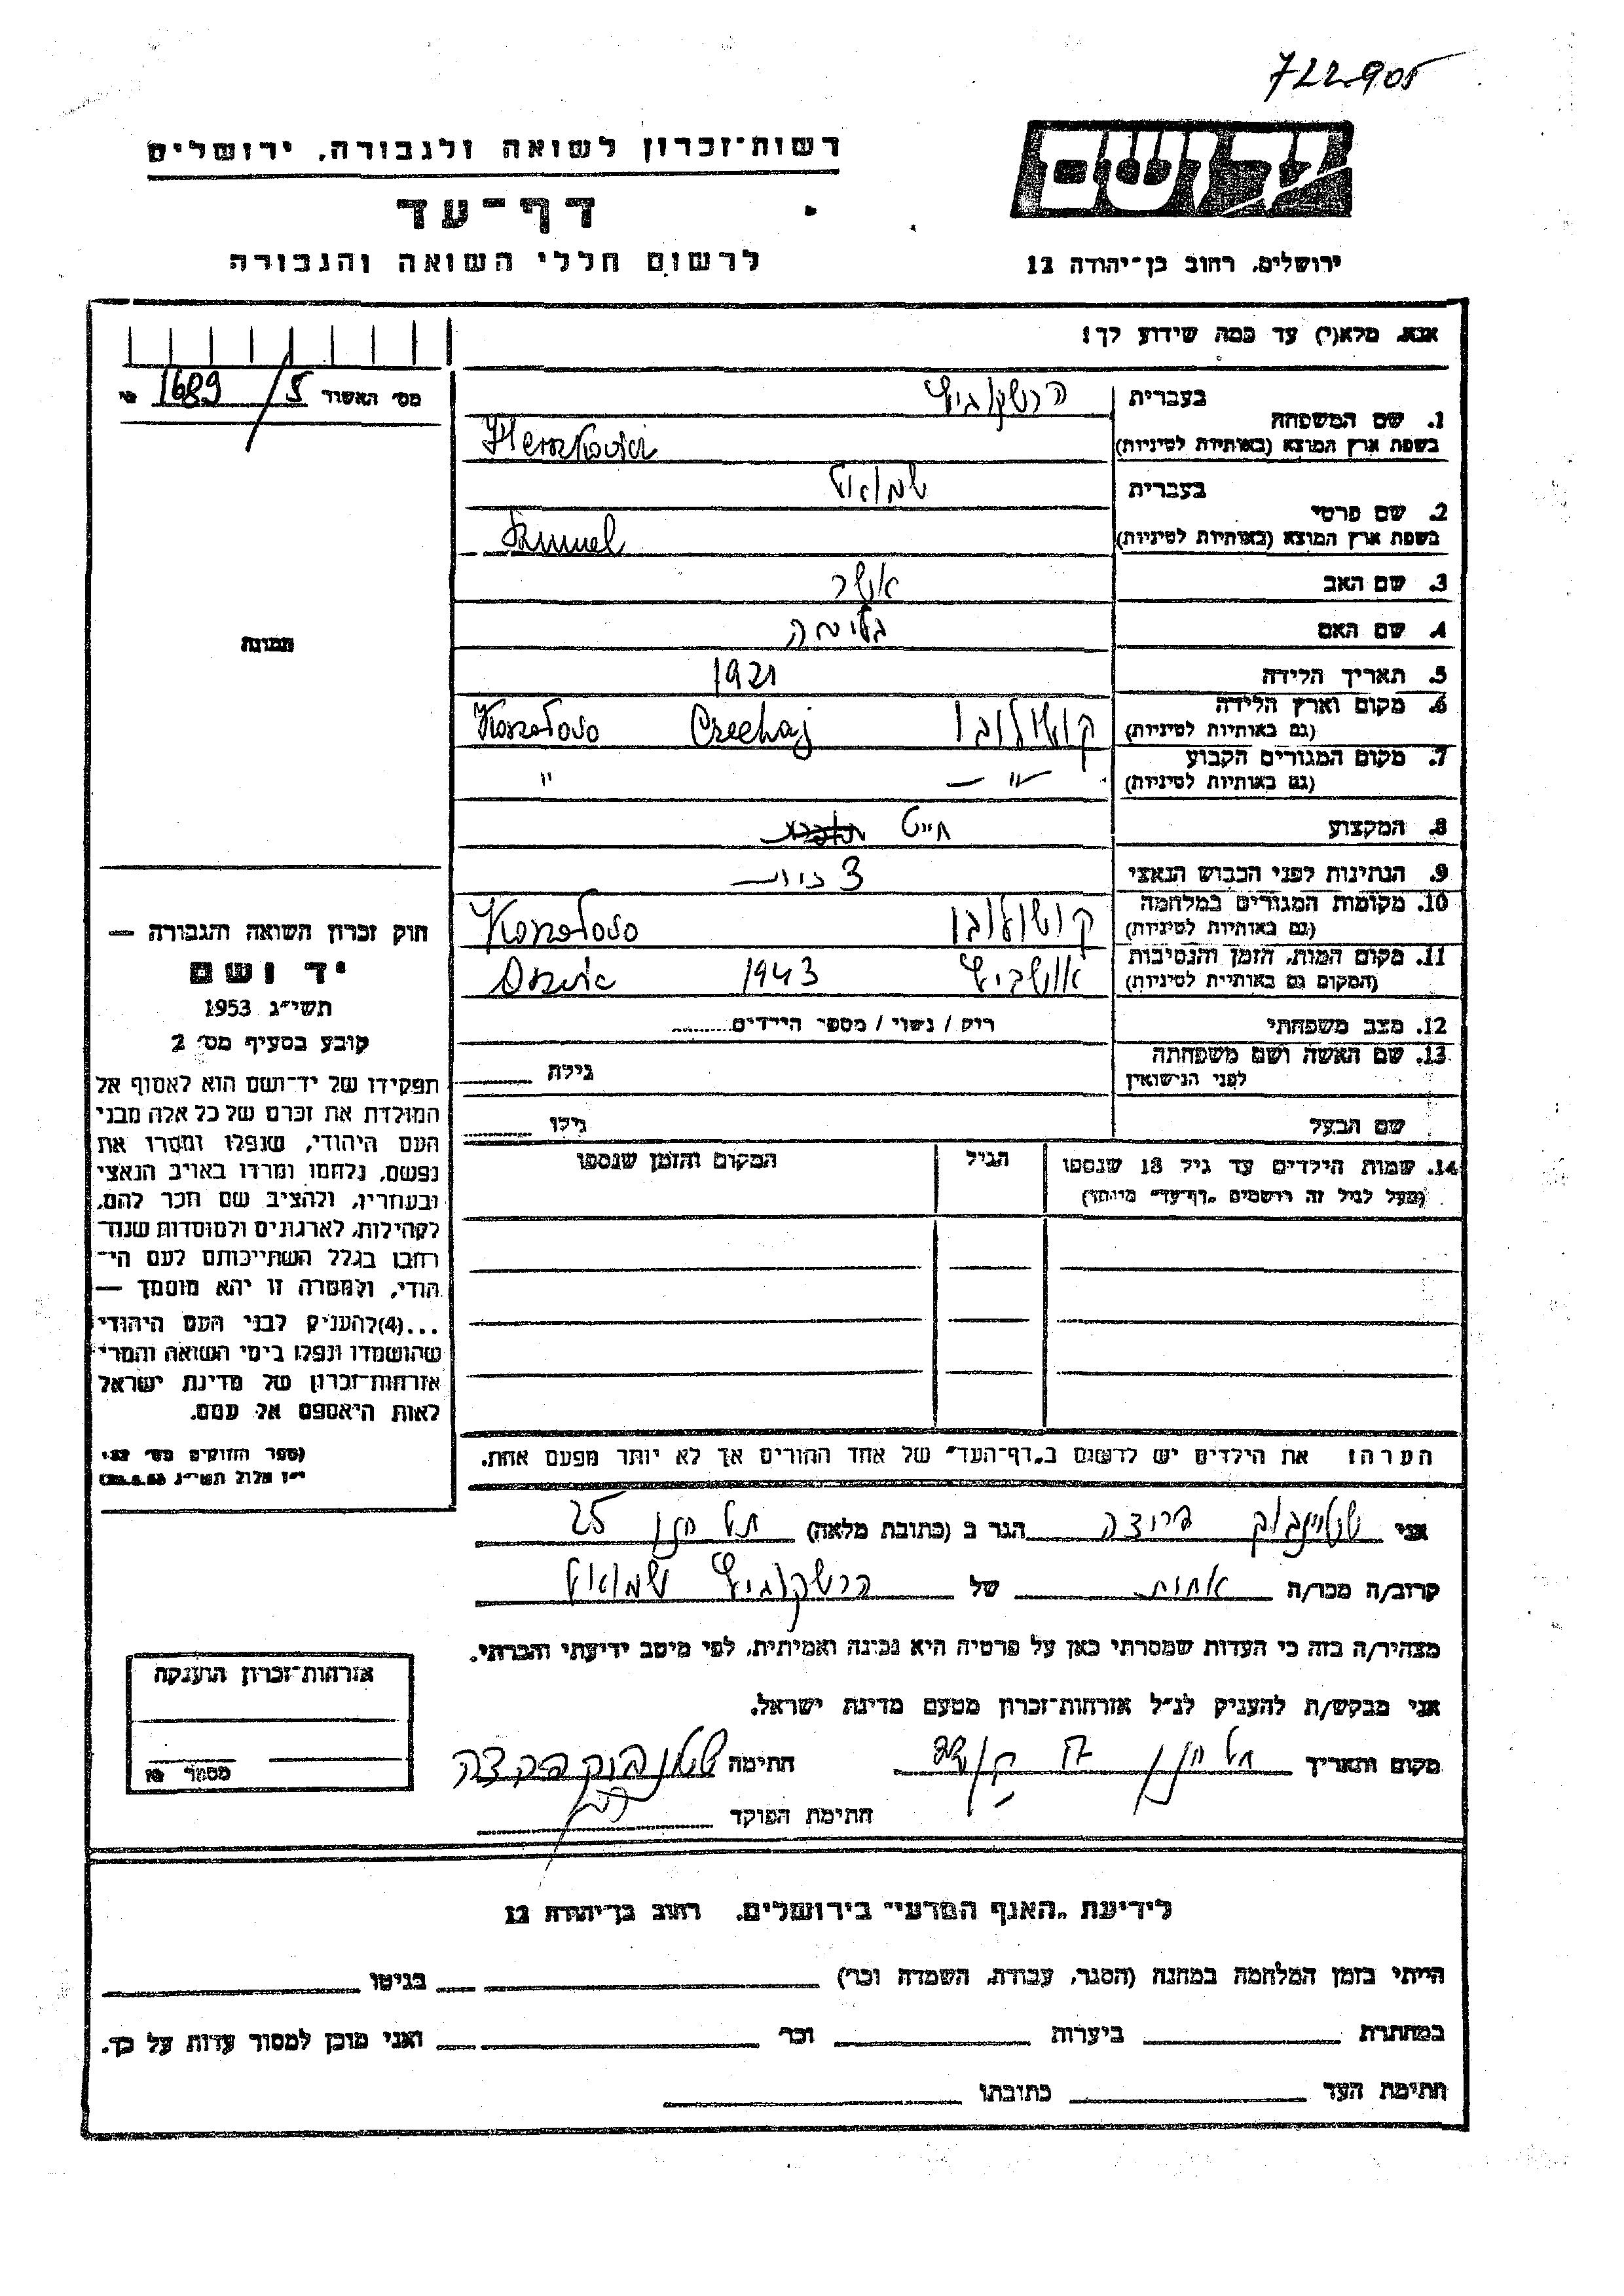 722905
רשות־זכרון לשואה ולגבורה, ירושלים
דף־עד
לרשום חללי השואה והגבורה
יד ושם
ירושלים, רחוב בן־יהודה 12
אנא, מלא(י) עד כמה שידוע לך!
מס׳ האשור 1689/5
1. שם המשפחה בעברית הרשקוביץ
בשפת ארץ המוצא (באותיות לטיניות) Herskovici
2. שם פרטי בעברית שמואל
בשפת ארץ המוצא (באותיות לטיניות)
3. שם האב אשר
4. שם האם
5. תאריך הלידה 1921
6. מקום וארץ הלידה
(גם באותיות לטיניות)
7. מקום המגורים הקבוע
(גם באותיות לטיניות) " "
8. המקצוע חייט
9. הנתינות לפני הכבוש הנאצי
10. מקומות המגורים במלחמה
(גם באותיות לטיניות)
11. מקום המות, הזמן והנסיבות אושביץ 1943
(המקום גם באותיות לטיניות)
12. מצב משפחתי רווק / נשוי / מספר הילדים
13. שם האשה ושם משפחתה
לפני הנישואין
גילה
שם הבעל
גילו
14. שמות הילדים עד גיל 18 שנספו הגיל המקום והזמן שנספו
(מעל לגיל זה רושמים „דף־עד״ מיוחד)
תמונה
חוק זכרון השואה והגבורה —
יד ושם
תשי״ג 1953
קובע בסעיף מס׳ 2
תפקידו של יד־ושם הוא לאסוף אל
המולדת את זכרם של כל אלה מבני
העם היהודי, שנפלו ומסרו את
נפשם, נלחמו ומרדו באויב הנאצי
ובעוזריו, ולהציב שם וזכר להם,
לקהילות, לארגונים ולמוסדות שנח־
רבו בגלל השתייכותם לעם הי־
הודי, ולמטרה זו יהא מוסמך —
...(4) להעניק לבני העם היהודי
שהושמדו ונפלו בימי השואה והמרי
אזרחות־זכרון של מדינת ישראל
לאות היאספם אל עמם.
(ספר החוקים מס׳ 132,
י״ז אלול תשי״ג 28.8.53)
הערה! את הילדים יש לרשום ב„דף־העד״ של אחד ההורים אך לא יותר מפעם אחת.
אני הגר ב (כתובת מלאה) תל חנן 25
קרוב/ה מכר/ה אחות של הרשקוביץ שמואל
מצהיר/ה בזה כי העדות שמסרתי כאן על פרטיה היא נכונה ואמיתית, לפי מיטב ידיעתי והכרתי.
אני מבקש/ת להעניק לנ״ל אזרחות־זכרון מטעם מדינת ישראל.
מקום ותאריך תל חנן חתימה
חתימת הפוקד
אזרחות־זכרון הוענקה
מספר
לידיעת „האגף המדעי״ בירושלים, רחוב בן־יהודה 12
הייתי בזמן המלחמה במחנה (הסגר, עבודה, השמדה וכר׳) בגיטו
במחתרת ביערות וכר׳ ואני מוכן למסור עדות על כך.
חתימת העד כתובתו